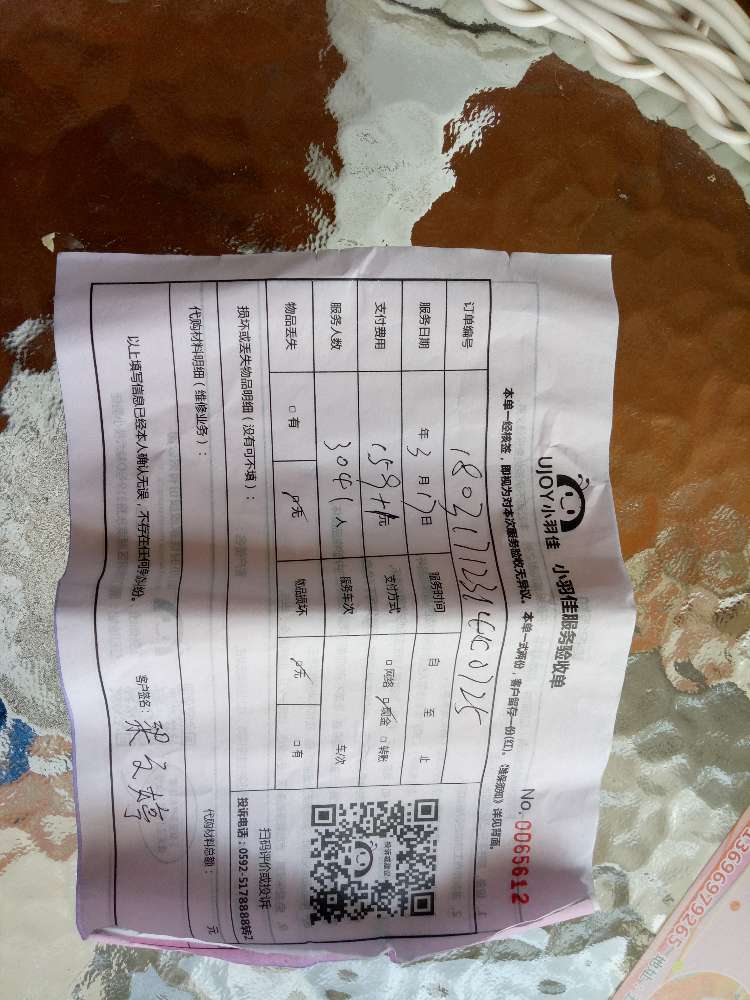 UJOY小羽佳 小羽佳服务验收单
No. 0065612
本单一经核签，即视为对本次服务验收无异议。本单一式两份，客户留存一份(红)。《维保须知》详见背面。
订单编号
服务日期 年 3 月 17 日 服务时间 自 至 止
支付费用 元 支付方式 □ 网络 □ 现金 □ 转账
服务人数 人 服务车次 车/次
物品丢失 □ 有 □ 无 物品损坏 □ 无 □ 有
损坏或丢失物品明细（没有可不填）：
代购材料明细（维修业务）：
代购材料总额： 元
投诉或建议
扫码评价或投诉
投诉电话：0592-5178888转2
以上填写信息已经本人确认无误，不存在任何纠纷。
客户签名：
13696979265
地址: